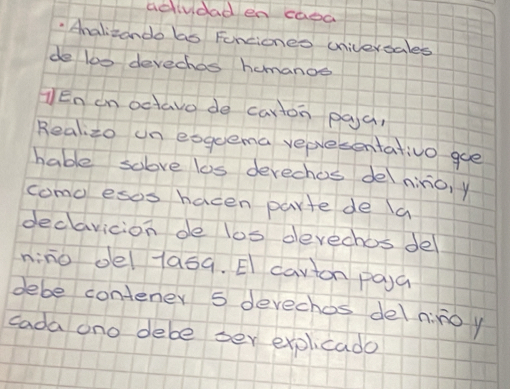 actividad en casa
• Analizando las Funciones universales
de los derechos humanos
1) En un octavo de carton paja,
Realizo un esquema representativo que
hable sobre los derechos del niño, y
como esos hacen parte de la
declaricion de los derechos del
niño del 1959. El carton paja
debe contener 5 derechos del niño y
cada uno debe ser explicado